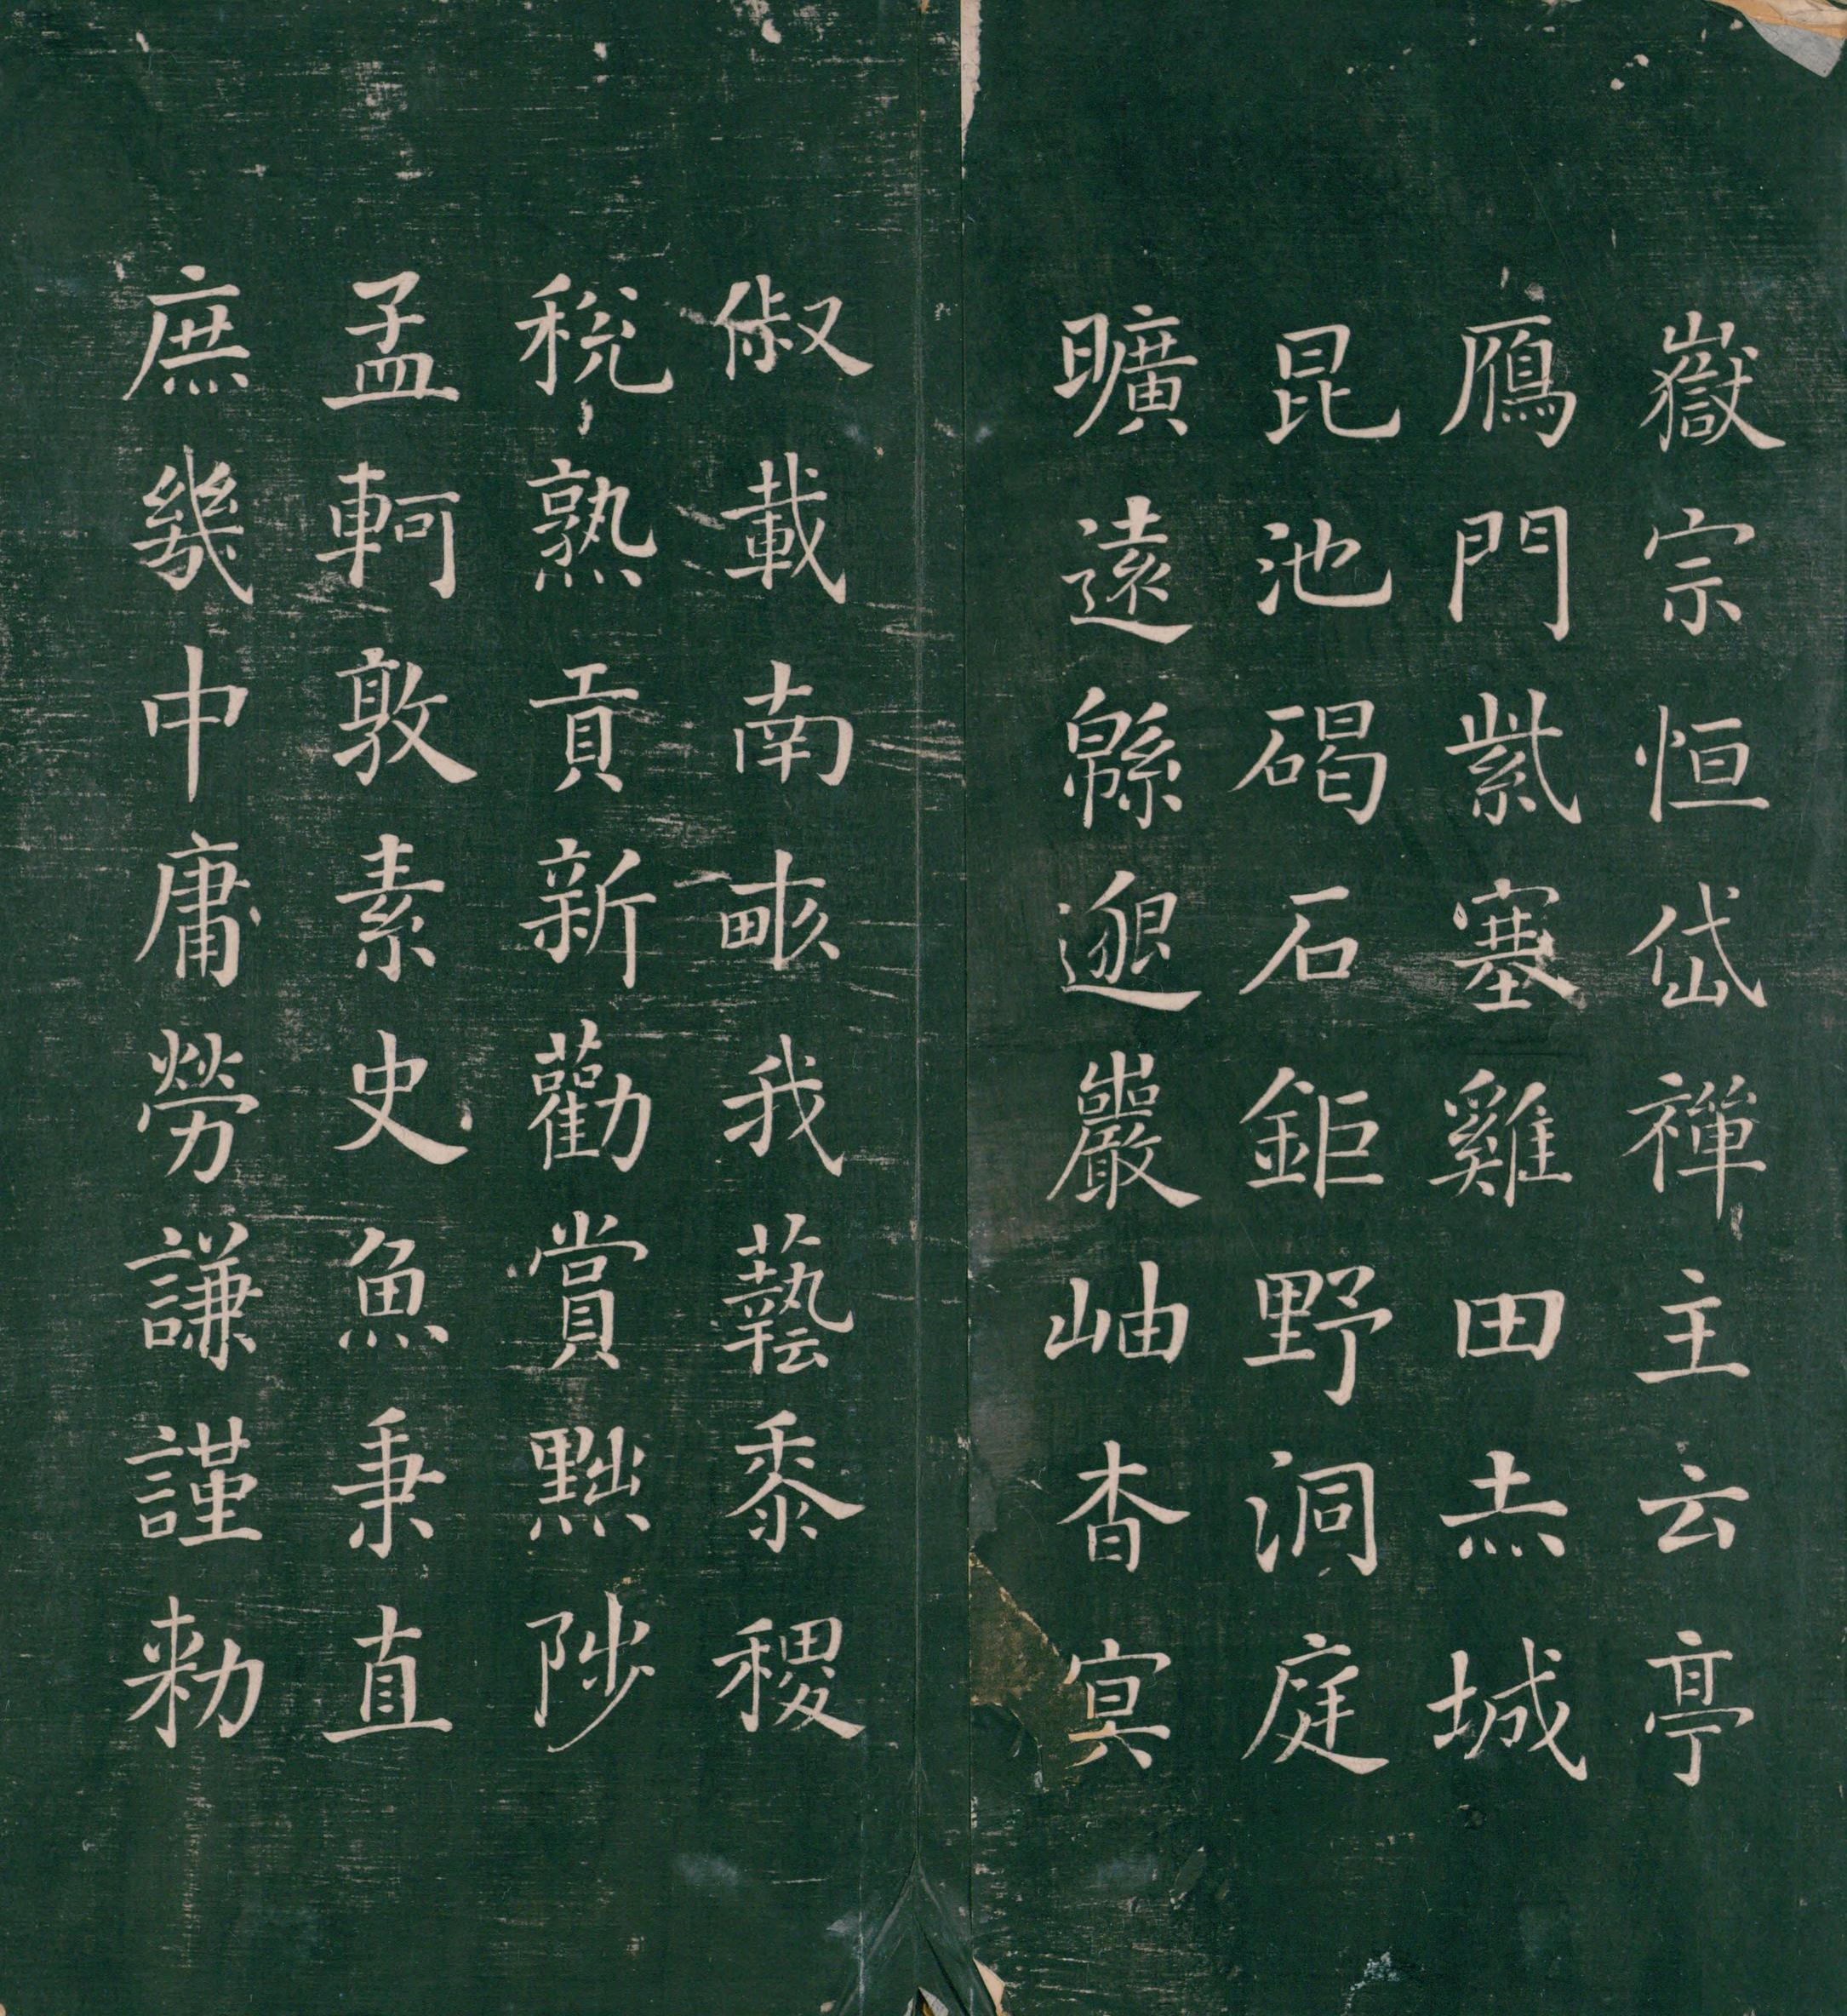 嶽宗恒岱禪主云亭
鴈門紫塞雞田赤城
昆池碣石鉅野洞庭
曠遠緜邈巖岫杳冥
俶載南畝我藝黍稷
稅熟貢新勸賞黜陟
孟軻敦素史魚秉直
庶幾中庸勞謙謹勑